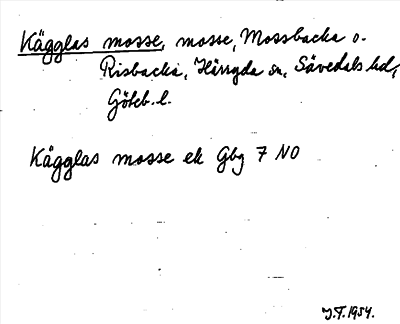 Kägglas mosse, mosse, Mossbacka o.
Risbacka, Härryda sn, Sävedals hd,
Göteb. l.
Kägglas mosse ek Gbg 7 NO
J.T. 1954.